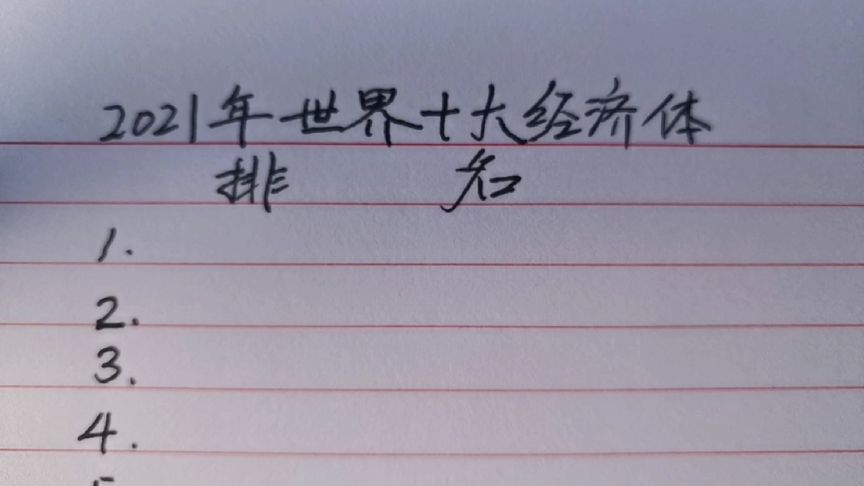 2021年世界十大经济体
排 名
1.
2.
3.
4.